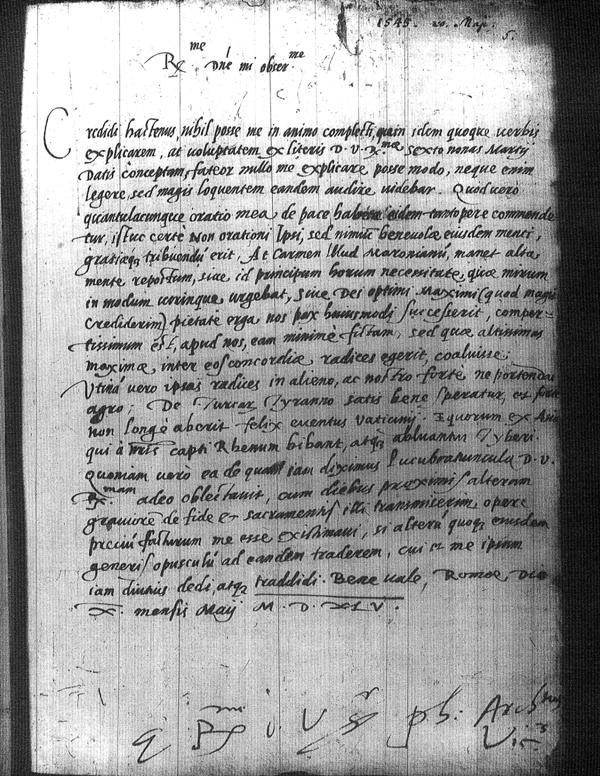 1545. 20. Maji.
5.
R.me Dñe mi obser.me
Credidi hactenus, nihil posse me in animo complecti, quin idem quoque verbis
explicarem, at voluptatem ex literis D. V. R.mae sexto nonas Martij
datis conceptam, fateor nullo me explicare posse modo, neque enim
legere, sed magis loquentem eandem audire videbar. Quod vero
quantulacunque oratio mea de pace eidem tantopere commende
tur, istuc certè non orationi ipsi, sed nimiũ benevolæ eiusdem menti,
gratiæq; tribuendũ erit. At Carmen illud Maronianũ, manet alta
mente repostum, sive id principum horum necessitate, quæ mirum
in modum utrinque urgebat, sive Dei optimi Maximi (quod magis
crediderim) pietate erga nos pax huiusmodi successerit, comper-
tissimum est, apud nos, eam minimè fictam, sed quæ altissimas
maximæ inter eos concordiæ radices egerit, coaluisse;
Utinã vero ipsas radices in alieno, ac nostro fortè ne portendat
agro; De Turcar Tyranno satis bene speratur, et forte
non longè aberit felix eventus Vaticinij. Equorum ex Asia
qui à nostris capti Rhenum bibant, atq; abluantur Tyberi.
Quoniam verò ea de qua iam diximus Lucubratiuncula D. V.
R.mam adeo oblectavit, cum diebus proximis alteram
graviorẽ de fide et sacramentis illi transmiserim, opere
preciũ facturum me esse existimavi, si alterũ quoq; eiusdem
generis opusculũ ad eandem traderem, cui et me ipsum
iam diutius dedi, atq; traddidi. Bene vale, Romæ, Die
X. mensis Maij M. D. XLV.
E R.mi V.